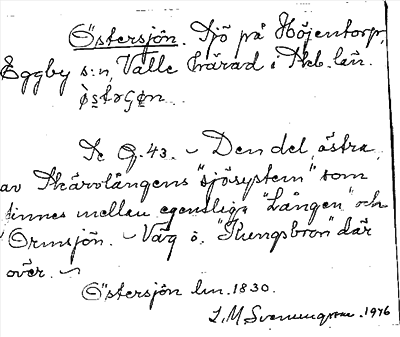 Östersjön. Sjö på Höjentorp,
Eggby s:n, Valle härad i Skb. län.
Se G. 43. – Den del, östra,
av Skärvlångens "sjösystem" som
finnes mellan egentliga "Lången" och
Ormsjön. – Väg ö. "Kungsbron" där
över. –
Östersjön lm. 1830.
1946